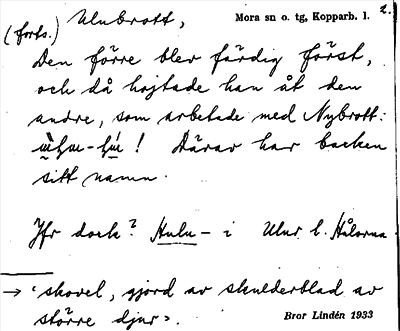 (forts.) Ulubrott, Mora sn o. tg, Kopparb. l. 2.
Den förre blev färdig först,
och då hojtade han åt den
andre, som arbetade med Nybrott:
! Därav har backen
sitt namn.
Jfr dock? Hulu- i Ulur l. Hålorna.
→ ‘skovel, gjord av skulderblad av
större djur’.
Bror Lindén 1933